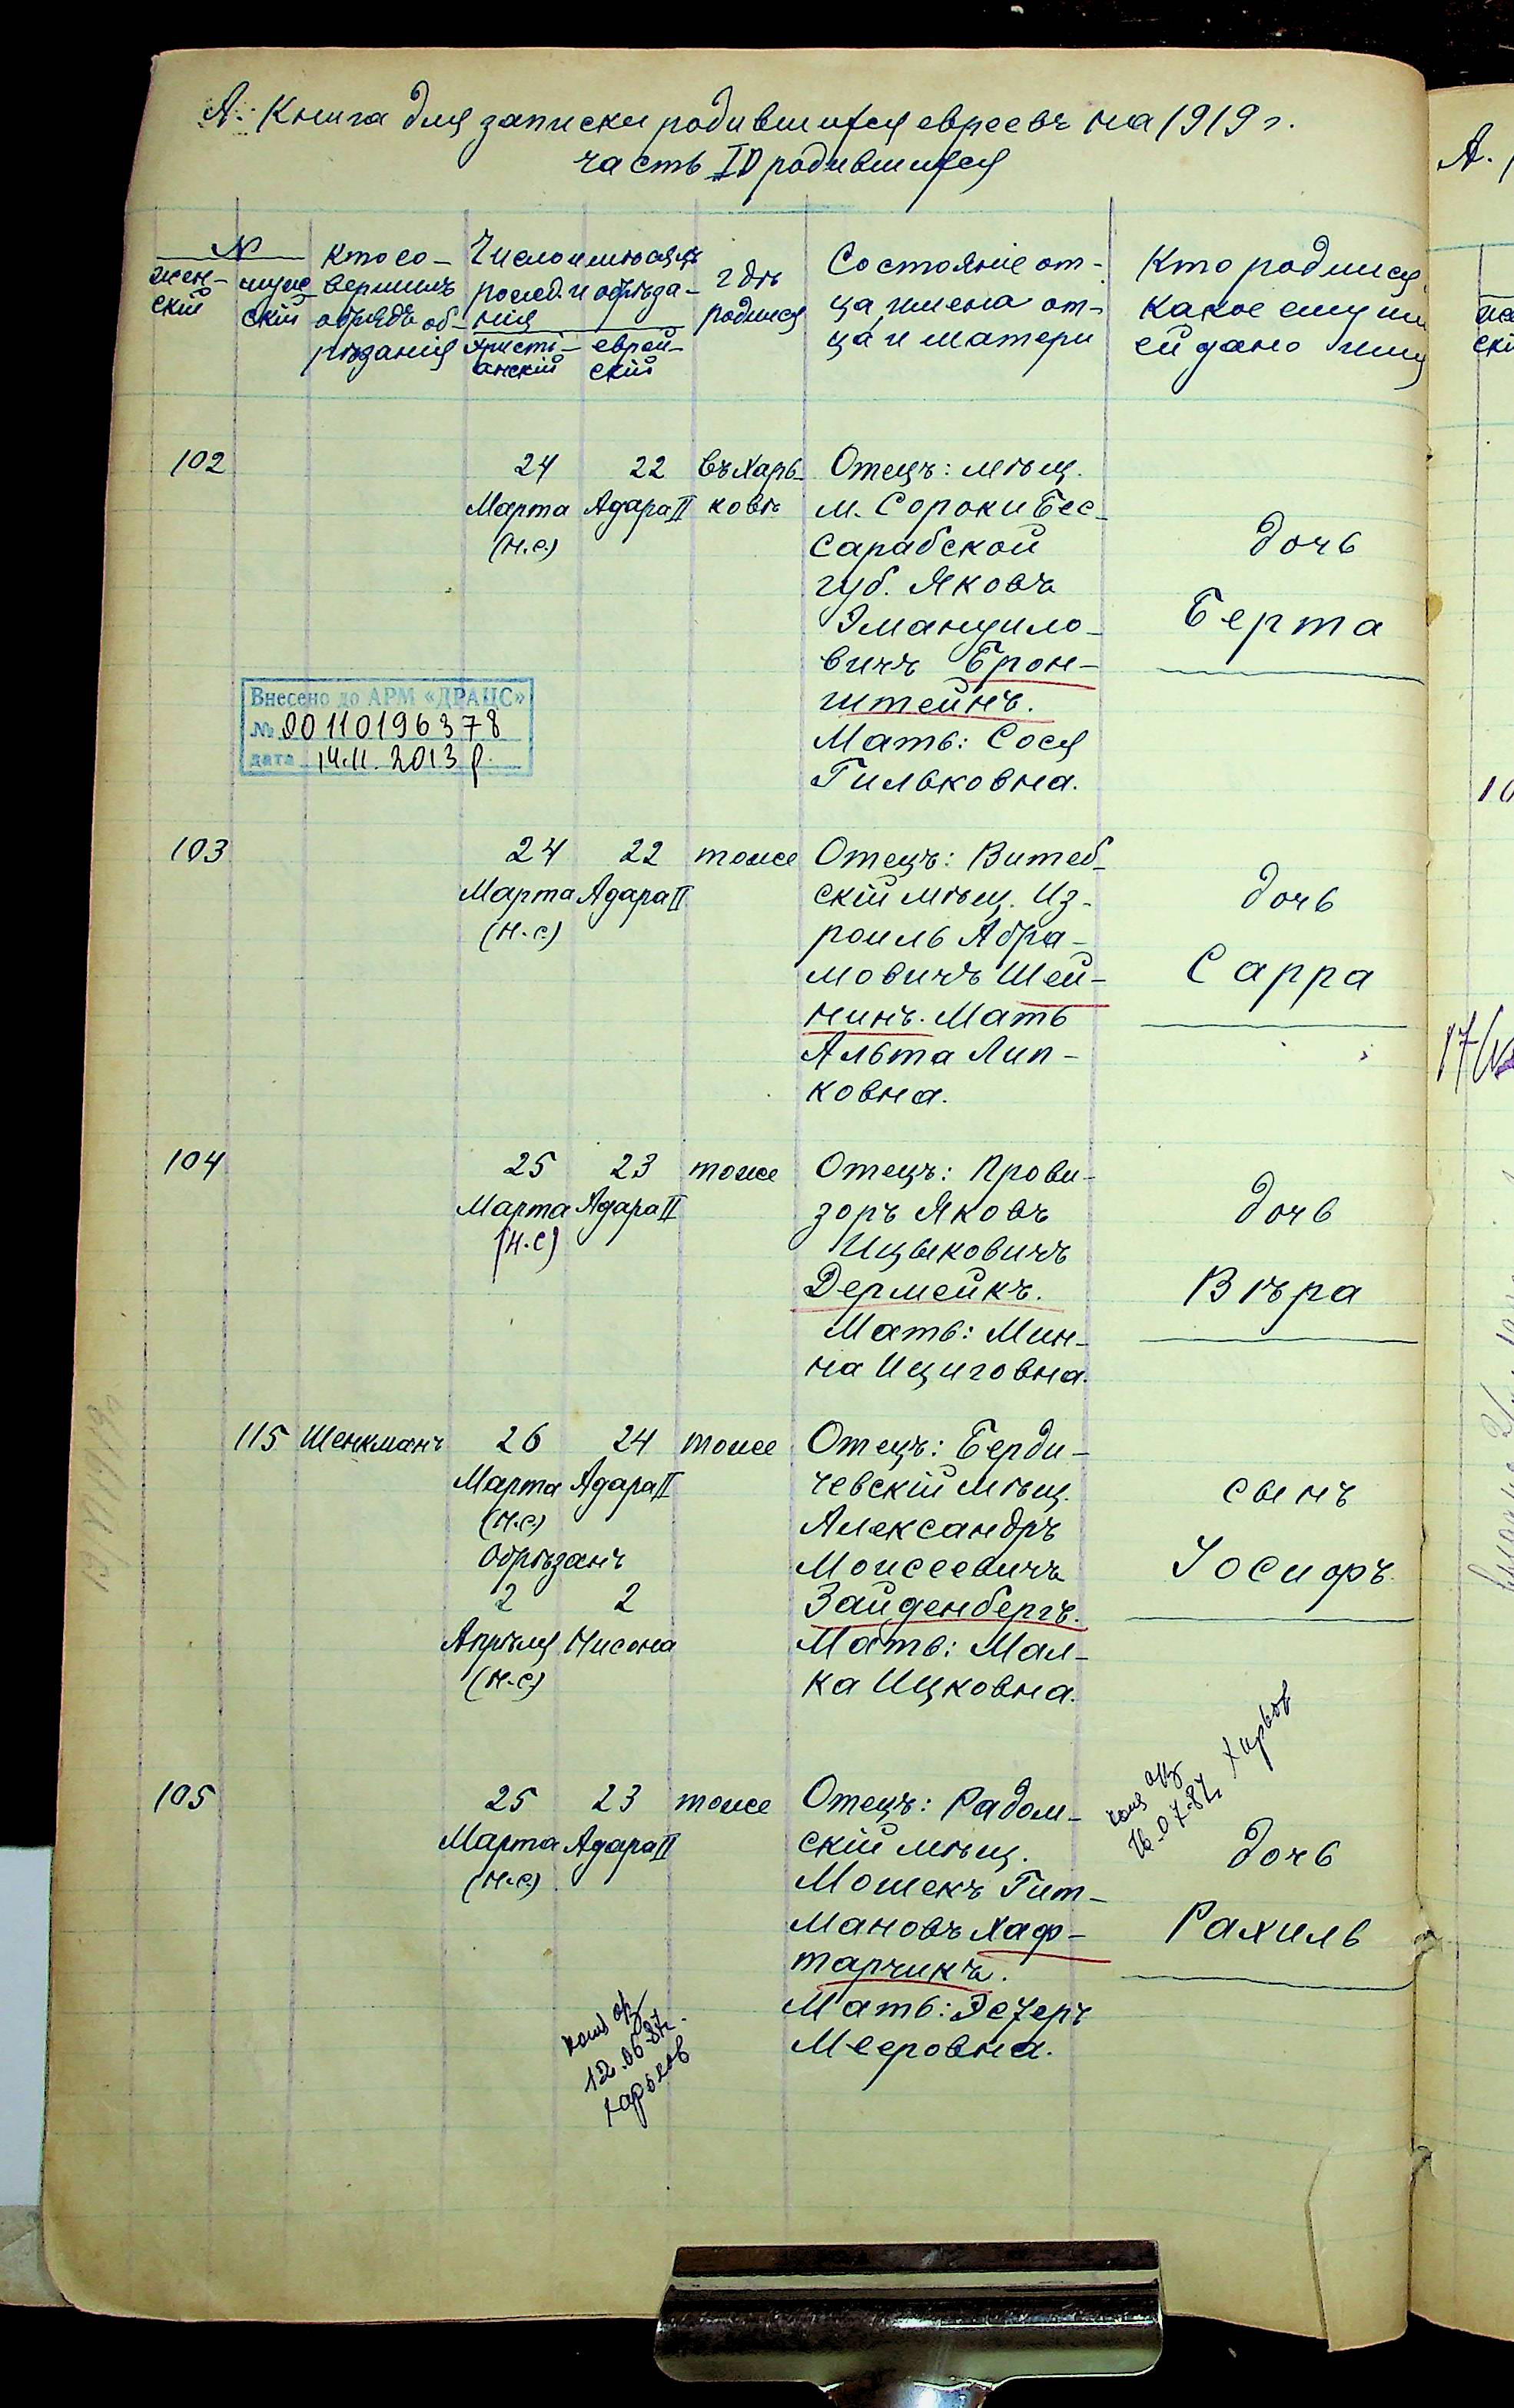 А. Книга для записки родившихся евреевъ на 1919 г.
часть I родившихся
№
жен-
скій
муж-
скій
Кто со-
вершилъ
обрядъ об-
рѣзанія
Число и мѣсяцъ
рожд. и обрѣза-
нія
христі-
анскій
еврей-
скій
гдѣ
родился
Состояніе от-
ца, имена от-
ца и матери
Кто родился,
какое ему или
ей дано имя
102
24
Марта
(н.с.)
22
Адара II
въ Харь-
ковѣ
Отецъ: мѣщ.
м. Сороки Бес-
сарабской
губ. Яковъ
Эмануило-
вичъ Брон-
штейнъ.
Мать: Сося
Гильковна.
дочь
Берта
Внесено до АРМ «ДРАЦС»
№ 00110196378
дата 14.11.2013 р.
103
24
Марта
(н.с)
22
Адара II
тоже
Отецъ: Витеб-
скій мѣщ. Из-
роиль Абра-
мовичъ Шей-
нинъ. Мать
Альта Лип-
ковна.
дочь
Сарра
104
25
Марта
(н.с)
23
Адара II
тоже
Отецъ: Прови-
зоръ Яковъ
Ицыковичъ
Дермейкъ.
Мать: Мин-
на Ициговна.
дочь
Вѣра
115
Шенкманъ
26
Марта
(н.с)
24
Адара II
Обрѣзанъ
2
Апрѣля
(н.с)
2
Нисона
тоже
Отецъ: Берди-
чевскій мѣщ.
Александръ
Моисеевичъ
Зайденбергъ.
Мать: Мал-
ка Ицковна.
сынъ
Іосифъ
105
25
Марта
(н.с.)
23
Адара II
тоже
Отецъ: Радом-
скій мѣщ.
Мошекъ Гит-
мановъ Хаф-
тарчикъ.
Мать: Эстеръ
Мееровна.
16.07.87г Харьков
дочь
Рахиль
12.06.87г.
Харьков